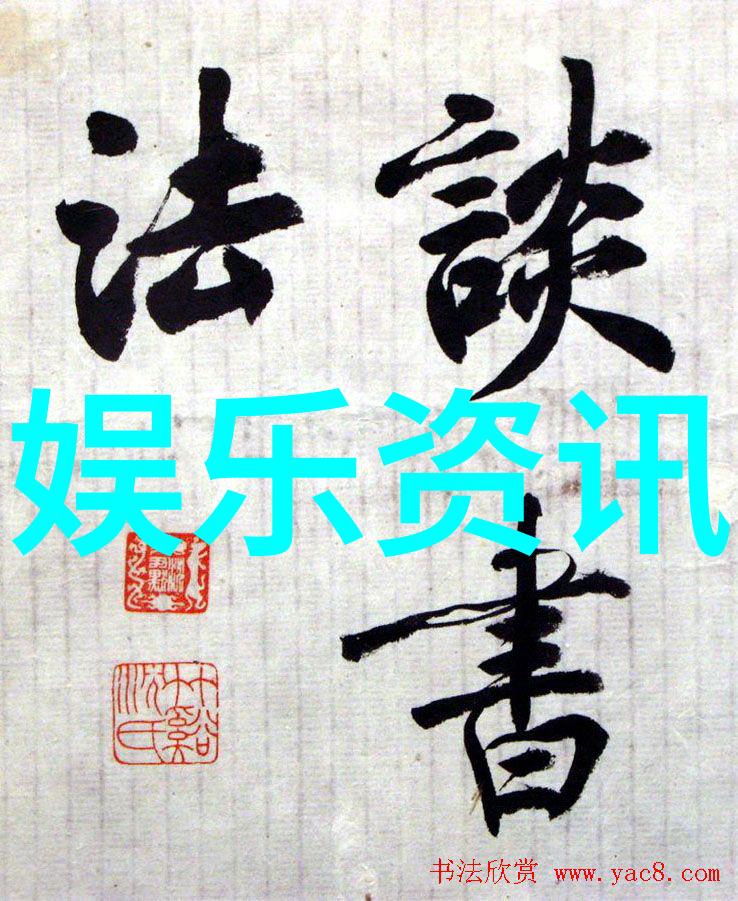 談書
法
娱乐资讯
书法欣赏 www.yac8.com